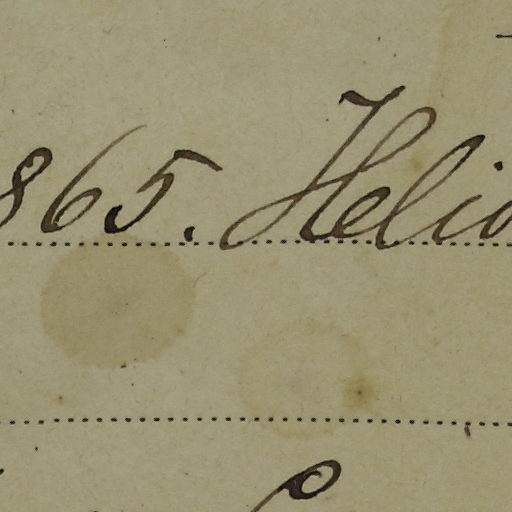 865. Helio